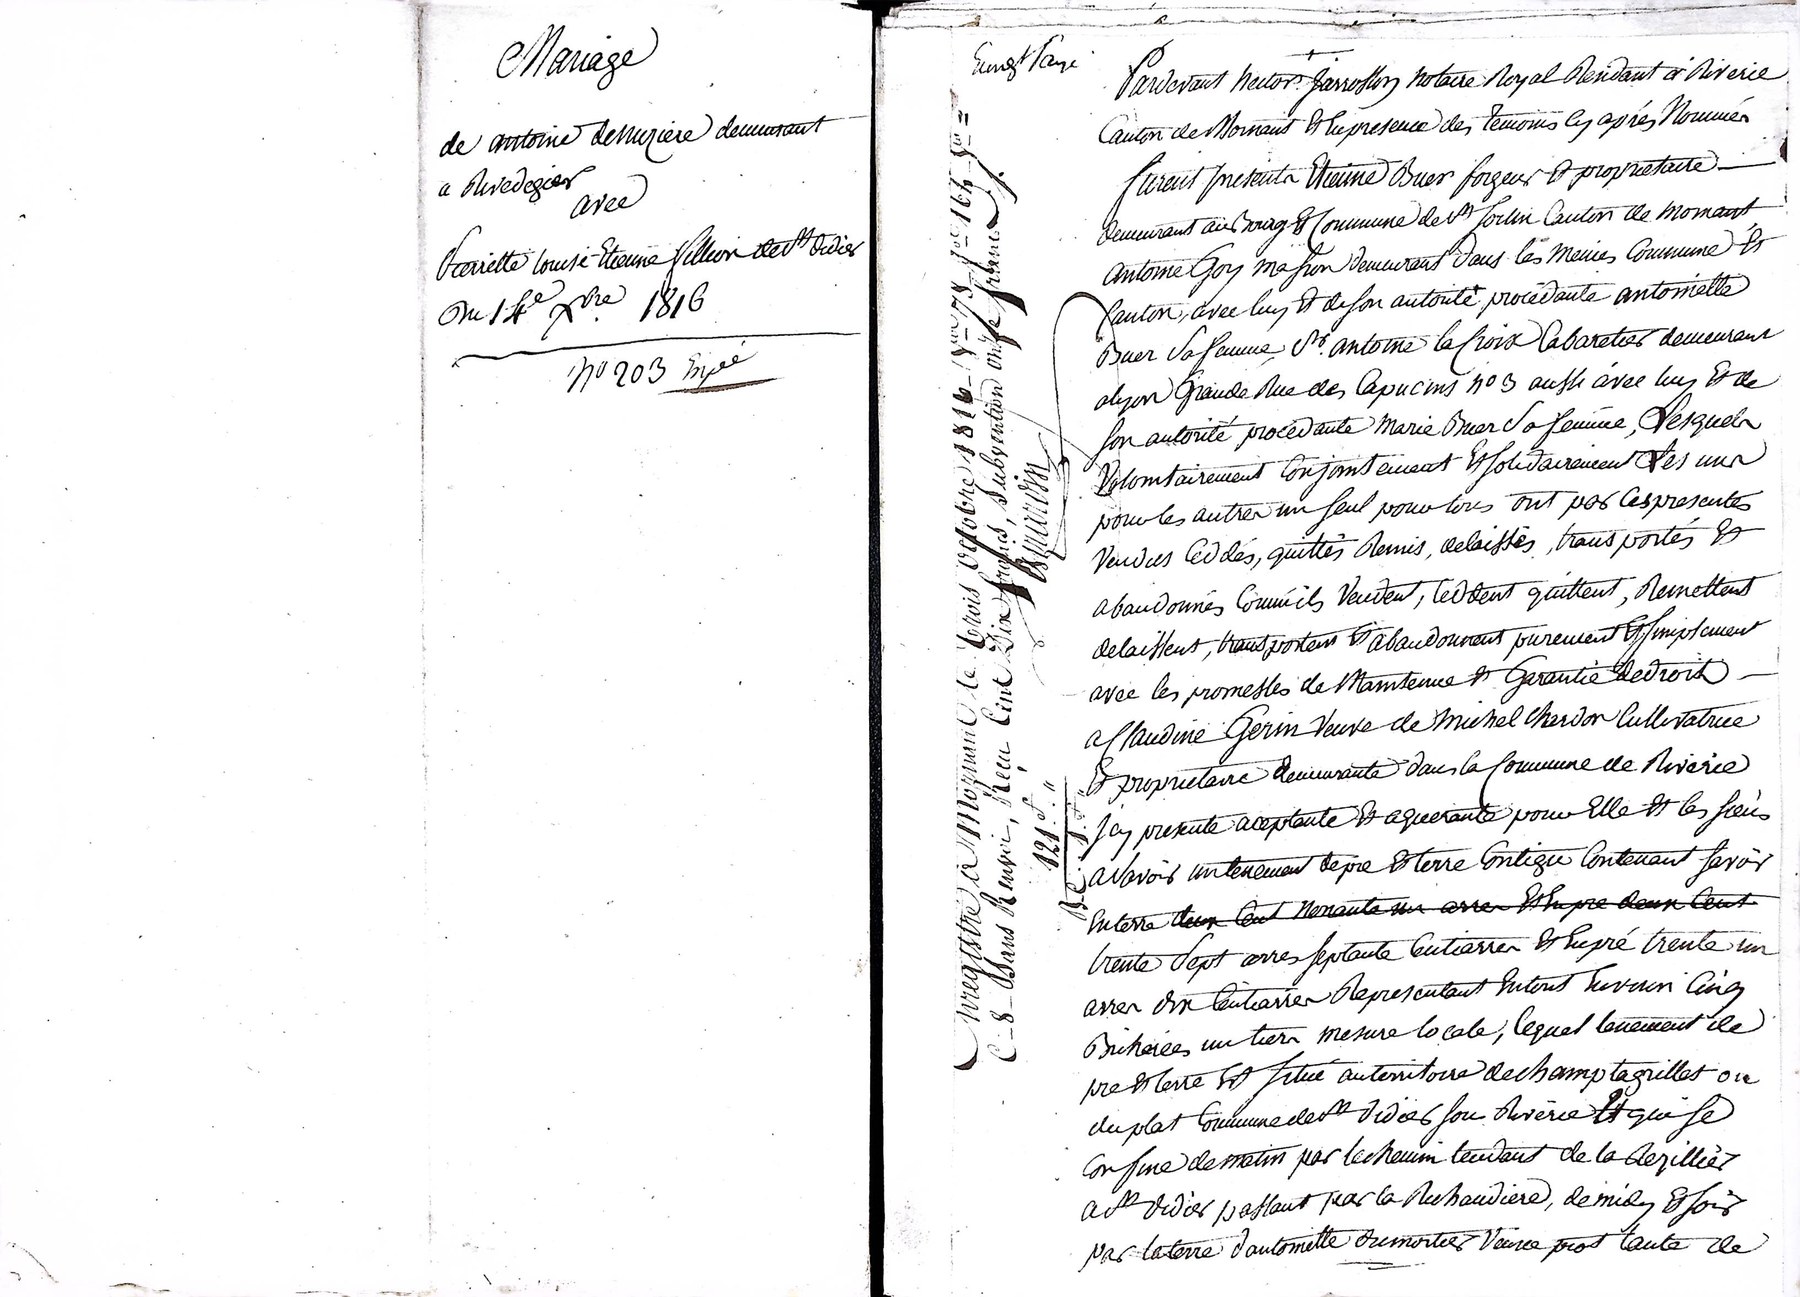 Mariage
de antoine demurziere demeurant
a Rivedegier
avec
Pierrette louise Etienne fillion de st didier
Du 14e xbre 1816
No 203 Expé
Pardevant hector jarrosson notaire Royal Residant à Riverie
Canton de Mornant Et En presence des temoins cy après Nommés
furent presents Etienne Buer forgeur Et proprietaire
demeurant au Bourg Et Commune de st Sorlin Canton de Mornant
antoine Goy masson demeurant dans les memes Commune Et
Canton, avec luy Et de son autorité procédante antoinette
Buer Sa femme, Sr. antoine la Croix Cabaretier demeurant
alyon Grande Rue des Capucins no 3 aussi avec luy Et de
son autorité procédante Marie Buer Sa femme, Lesquels
Volontairement Conjointement Et solidairement Les uns
pour les autres un seul pour tous ont par ces presentes
Vendus Ceddés, quittés Remis, delaissés, transportés Et
abandonnés Comme ils Vendent, Ceddent quittent, Remettent
delaissent, transportent Et abandonnent purement Et simplement
avec les promesses de Maintenue Et Garantie de droit
a Claudine Gerin Veuve de Michel Chardon Cultivatrice
Et proprietaire demeurante dans la Commune de Riverie
jcy presente aceptante Et aquerante pour Elle Et les siens
a Savoir un tenement de pré Et terre Contigu Contenant savoir
En terre deux Cent Nonante un arres Et En pre deux Cent
trente Sept arres septante Centiarres Et En pré trente un
arres dix Centiarres Representant En tout Environ Cinq
Bicherées un tiers mesure locale, lequel tenement de
pre Et terre Est situé au territoire de champtagrillet ou
du plat Commune de st didier sous Riverie Et qui se
Confine de matin par le chemin tendant de la
a st didier passant par la Richaudiere, de midy Et soir
par la terre d'antoinette Dumortier Veuve de
Enregistré à Mornant le trois octobre 1816
C. 8 Sans Renvoi, Reçu Cent Dix francs, Subvention onze francs
121 f. "